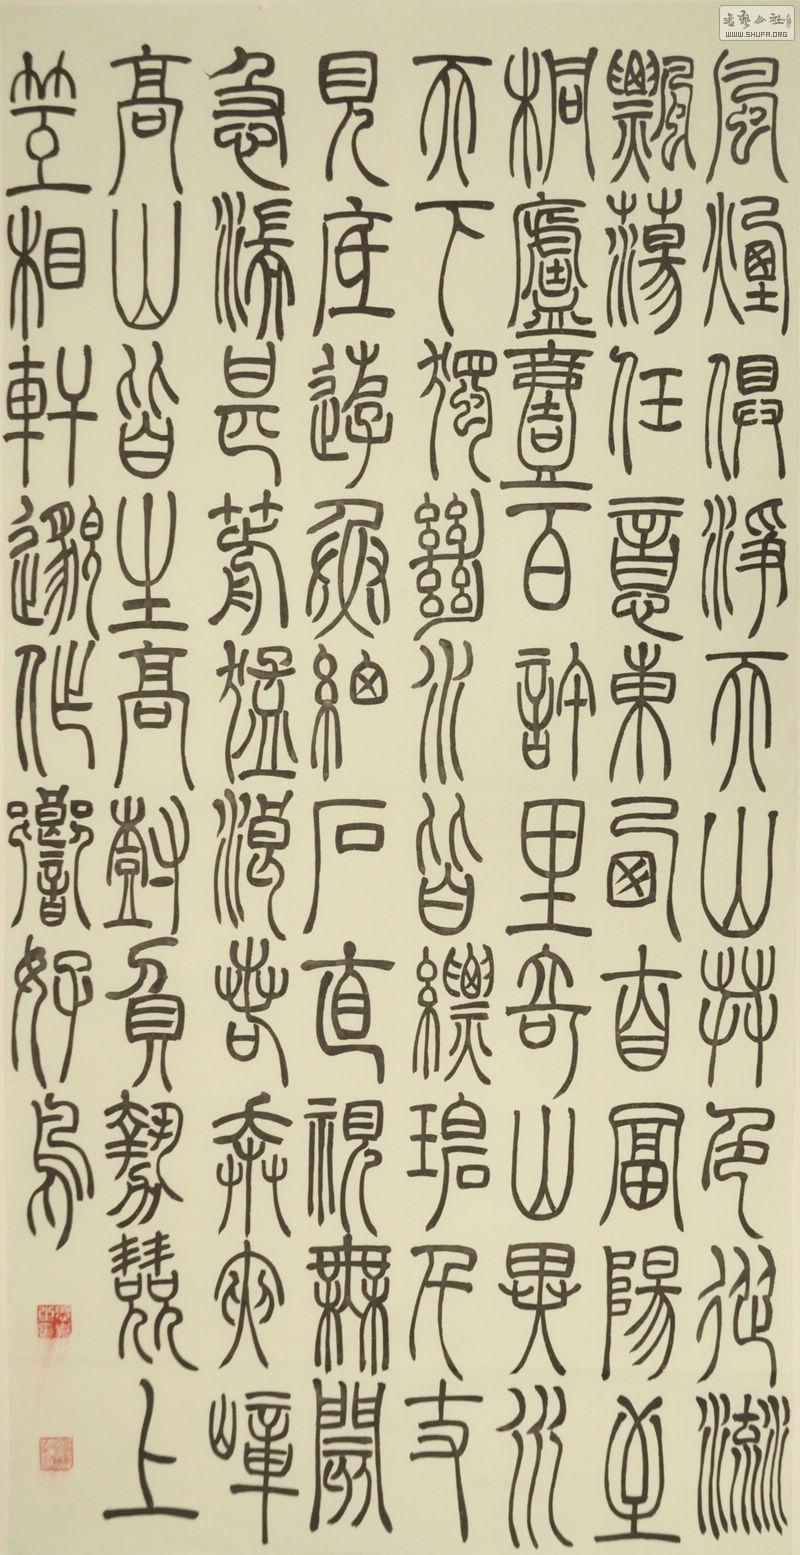 風煙俱淨天山共色從流
飄蕩任意東西自富陽至
桐廬壹百許里奇山異水
天下獨絕水皆縹碧千丈
見底遊魚細石直視無閡
急湍甚箭猛浪若奔夾嶂
高山皆生高樹負勢競上
互相軒邈作響好鳥
书艺公社
WWW.SHUFA.ORG